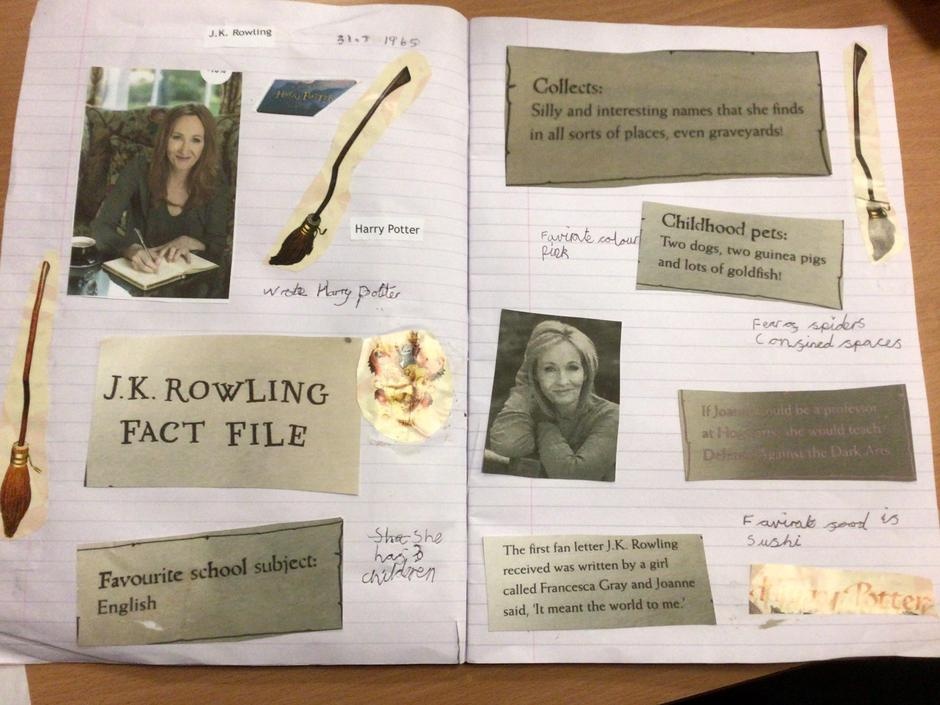 J.K. Rowling
1965
HARRY POTTER
Harry Potter
wrote Harry Potter
J.K. ROWLING
FACT FILE
Favourite school subject:
English
She She
has 3
children
Collects:
Silly and interesting names that she finds
in all sorts of places, even graveyards!
Favirate colour
Pink
Childhood pets:
Two dogs, two guinea pigs
and lots of goldfish!
Fear of spiders
Consined spaces
If Joanne could be a professor
at Hogwarts, she would teach
Defence Against the Dark Arts
Favirate food is
Sushi
The first fan letter J.K. Rowling
received was written by a girl
called Francesca Gray and Joanne
said, 'It meant the world to me.'
Harry Potter